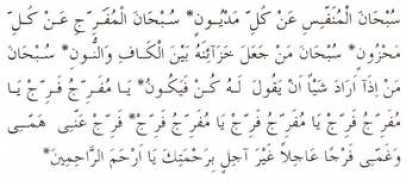 سُبْحَانَ الْمُنَفِّسِ عَنْ كُلِّ مَدْيُونٍ* سُبْحَانَ الْمُفَرِّجِ عَنْ كُلِّ
مَحْزُونٍ* سُبْحَانَ مَنْ جَعَلَ خَزَائِنَهُ بَيْنَ الْكَافِ وَالنُّونِ* سُبْحَانَ
مَنْ اِذَآ اَرَادَ شَيْأً اَنْ يَقُولَ لَهُ كُنْ فَيَكُونُ* يَا مُفَرِّجُ فَرِّجْ يَا
مُفَرِّجُ فَرِّجْ يَا مُفَرِّجُ فَرِّجْ يَا مُفَرِّجُ فَرِّجْ* فَرِّجْ عَنِّى هَمِّى
وَغَمِّى فَرْجًا عَاجِلاً غَيْرَ آجِلٍ بِرَحْمَتِكَ يَا اَرْحَمَ الرَّاحِمِينَ*